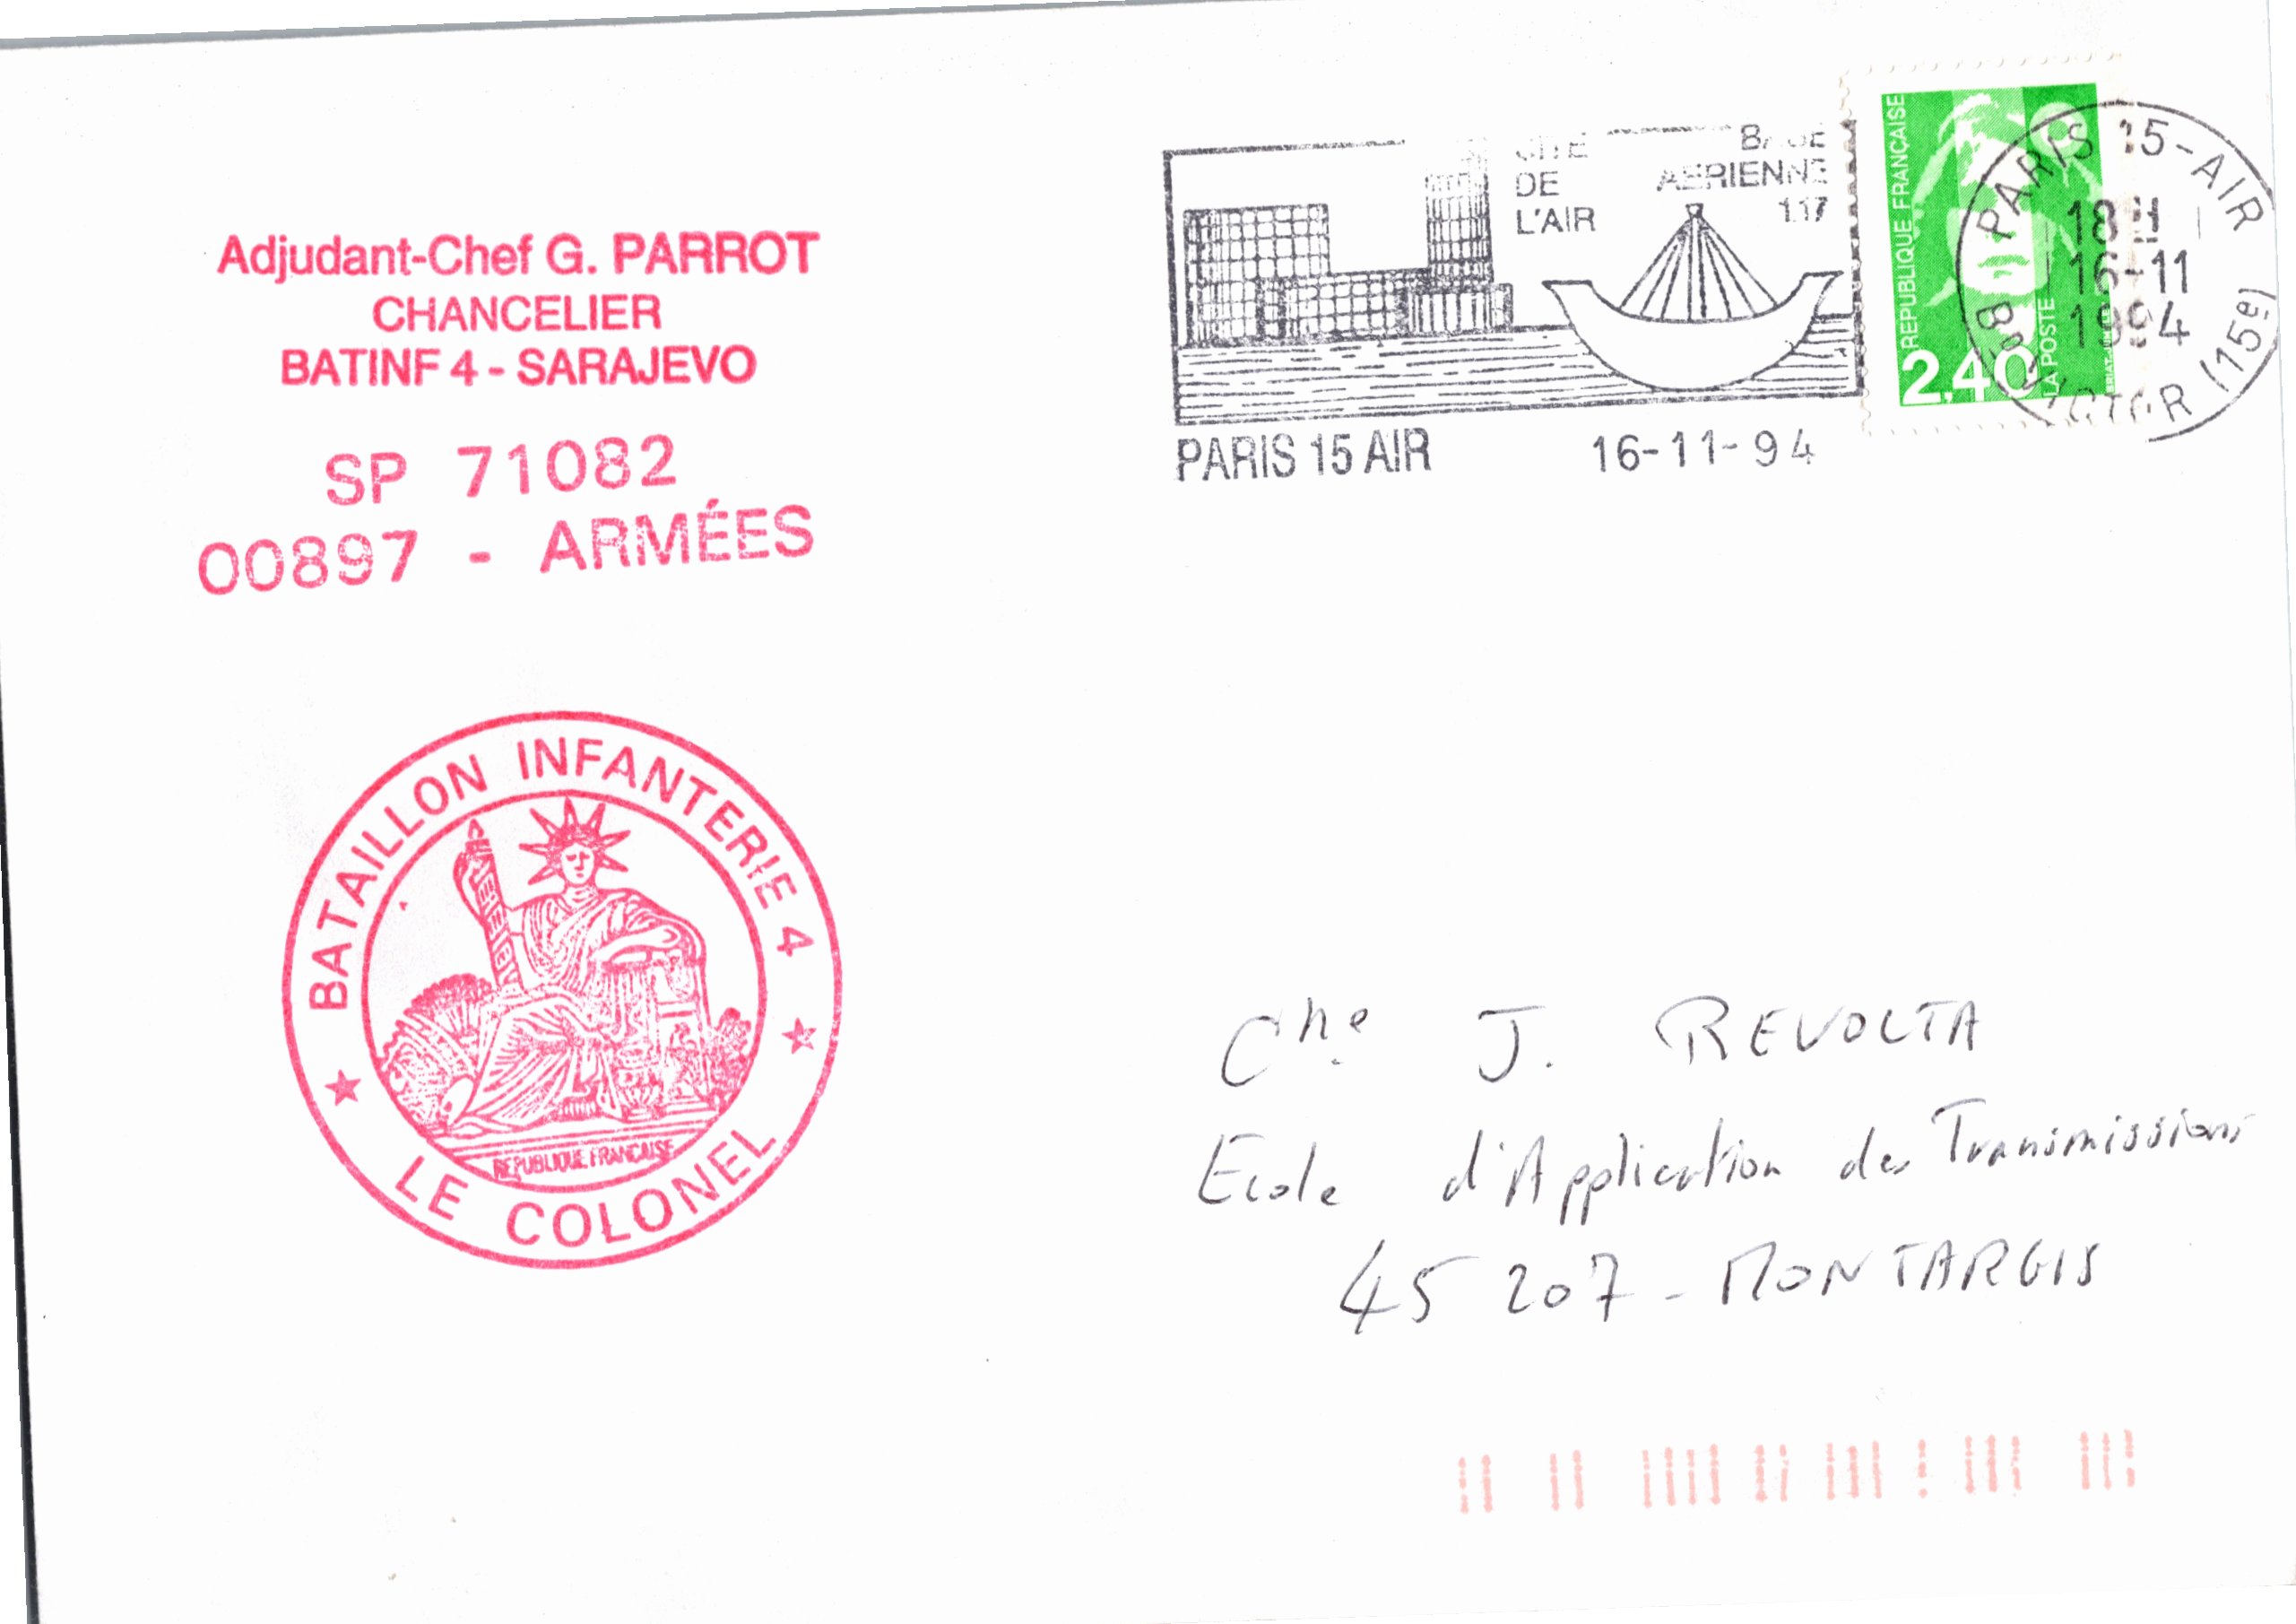 Adjudant-Chef G. PARROT
CHANCELIER
BATINF 4 - SARAJEVO
SP 71082
00897 - ARMÉES
CITE
DE
L'AIR
BASE
AERIENNE
117
PARIS 15 AIR 16-11-94
REPUBLIQUE FRANÇAISE
2,40
LA POSTE
PARIS 15-AIR
18 H
16-11
1994
BD VICTOR (15e)
BATAILLON INFANTERIE 4
REPUBLIQUE FRANÇAISE
LE COLONEL
Che J. REVOLTA
Ecole d'Application des Transmissions
45 207 - MONTARGIS